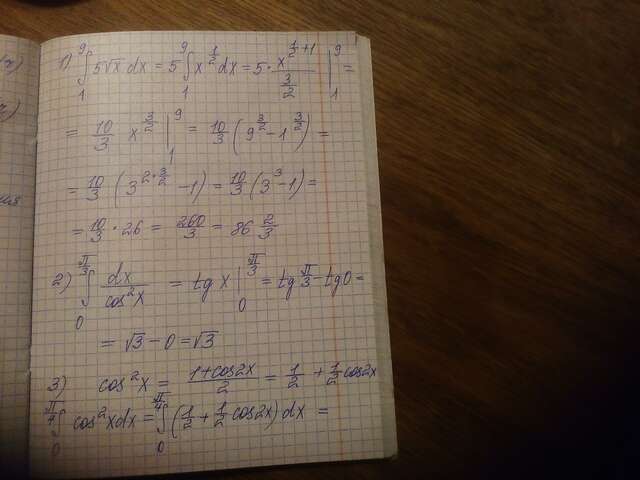 1) ∫₁⁹ 5√x dx = 5 ∫₁⁹ x^(1/2) dx = 5 · x^(1/2+1) / (3/2) |₁⁹ =
= 10/3 x^(3/2) |₁⁹ = 10/3 (9^(3/2) - 1^(3/2)) =
= 10/3 (3^(2·3/2) - 1) = 10/3 (3³ - 1) =
= 10/3 · 26 = 260/3 = 86 2/3
2) ∫₀^(π/3) dx / cos²x = tg x |₀^(π/3) = tg π/3 - tg 0 =
= √3 - 0 = √3
3) cos²x = (1 + cos2x) / 2 = 1/2 + 1/2 cos2x
∫₀^(π/4) cos²x dx = ∫₀^(π/4) (1/2 + 1/2 cos2x) dx =